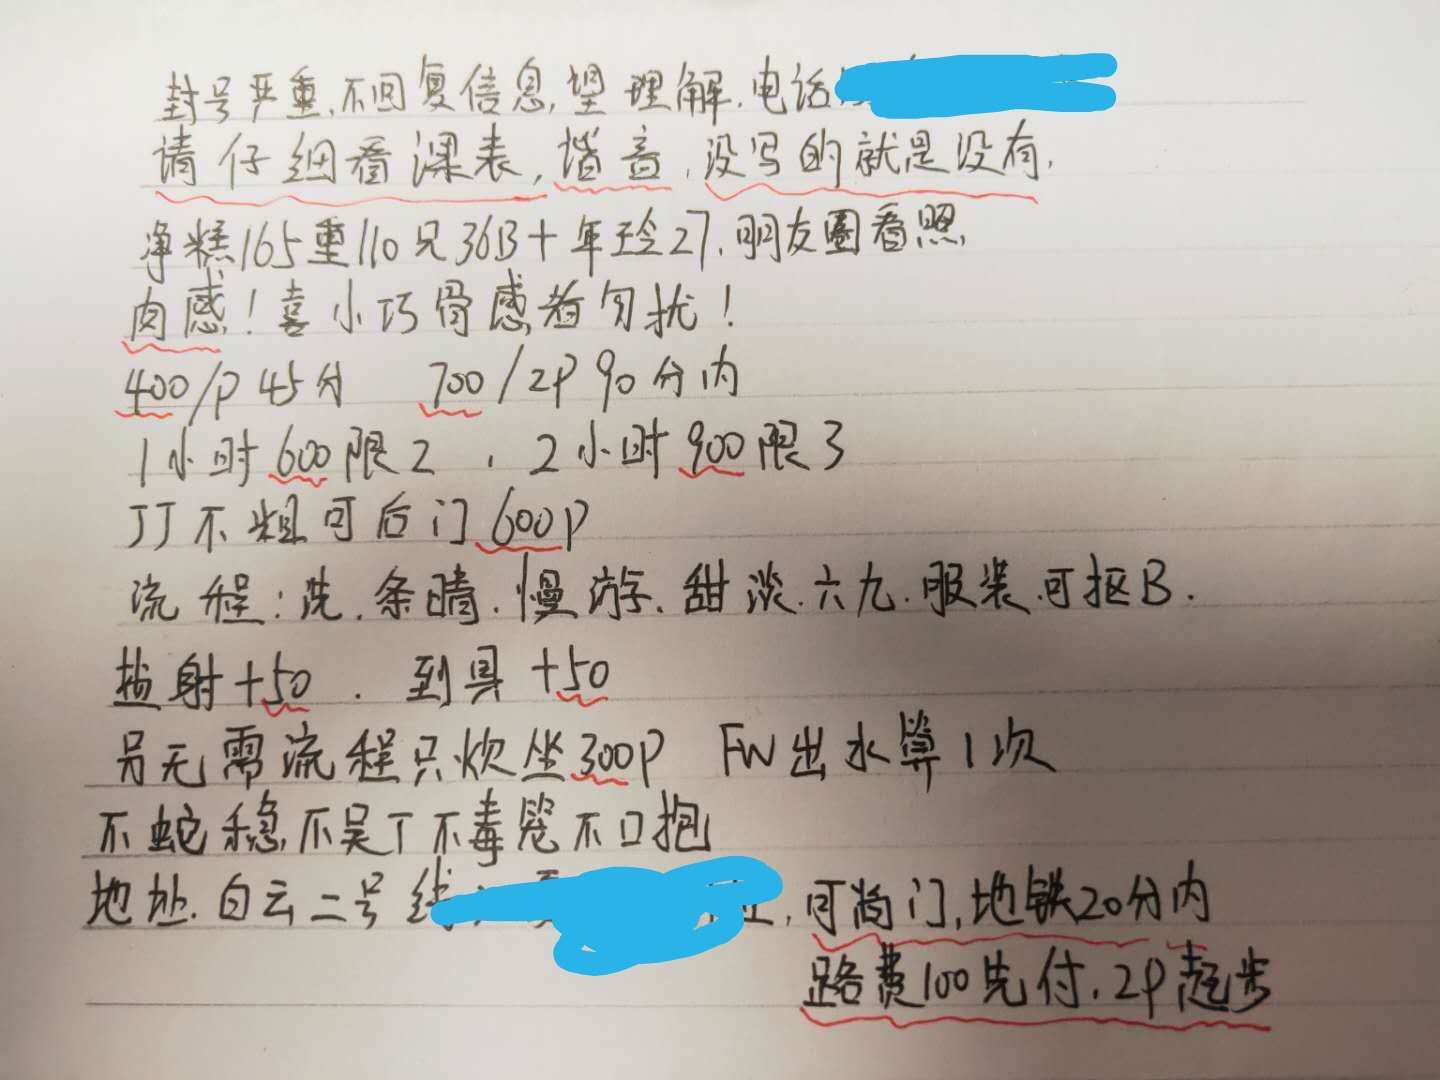 封号严重,不回复信息,望理解.电话
请仔细看课表,谐音,没写的就是没有,
净糕165重110兄36B+年玲27,朋友圈看照
肉感!喜小巧骨感者勿扰!
400/P 45分 700/2P 90分内
1小时600限2 , 2小时900限3
JJ不粗可后门600P
流程:洗.条晴.慢游.甜淡.六九.服装.可抠B.
盐射+50 . 到具+50
另无需流程只炊坐300P FW出水算1次
不蛇稳,不吴T不毒笼不口抱
地址.白云二号线 ,可尚门,地铁20分内
路费100先付.2P起步